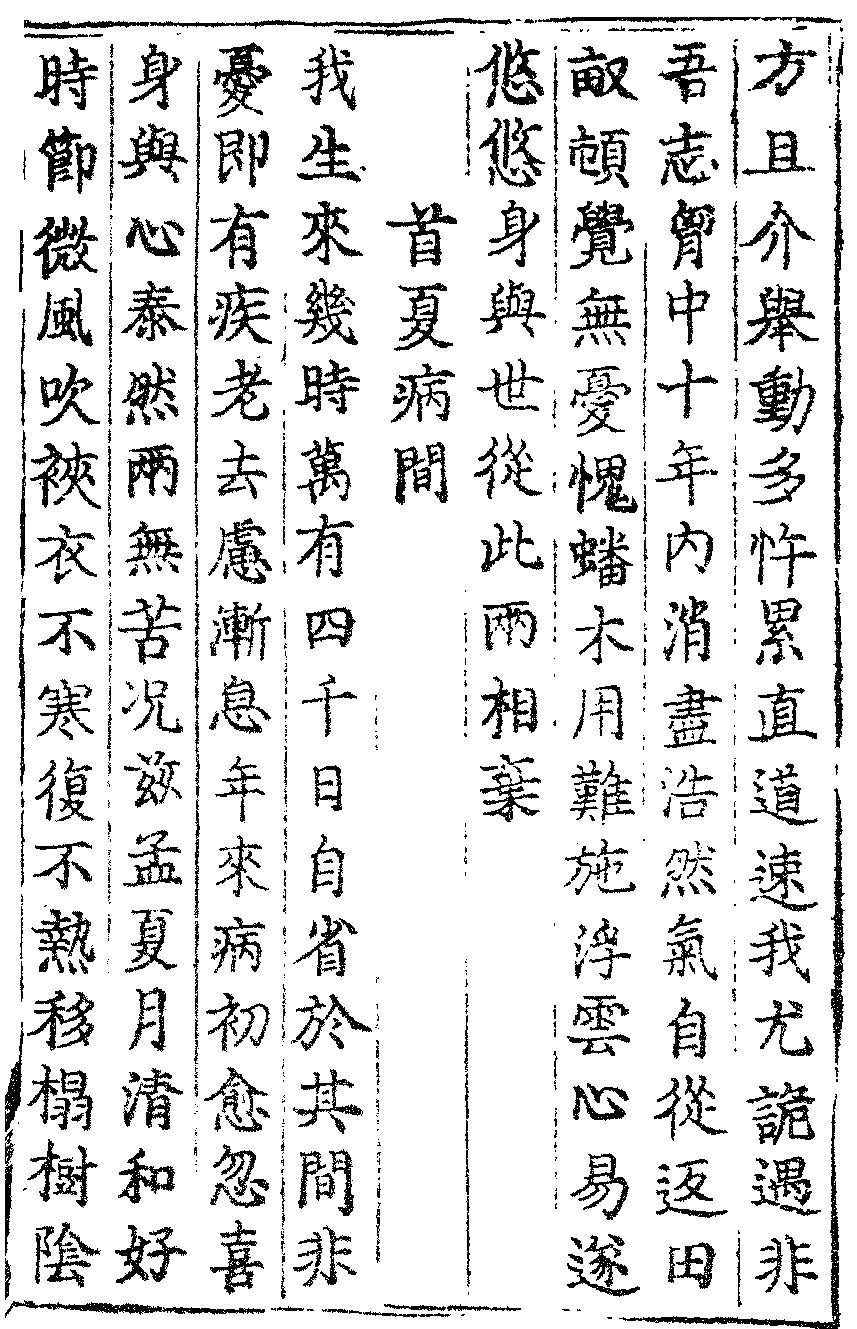 方且介舉動多忤累直道速我尤詭遇非
吾志胷中十年内消盡浩然氣自從返田
畝頓覺無憂愧蟠木用難施浮雲心易遂
悠悠身與世從此兩相棄
首夏病間
我生來幾時萬有四千日自省於其間非
憂即有疾老去慮漸息年來病初愈忽喜
身與心泰然兩無苦况兹孟夏月清和好
時節微風吹裌衣不寒復不熱移榻樹陰